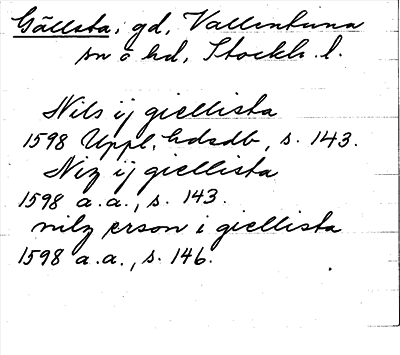 Gällsta, gd, Vallentuna
sn o hd, Stockh. l.
Nils ij giellista
1598 Uppl. hdsdb, s. 143.
Niz ij giellista
1598 a.a., s. 143.
nilz erson i giellista
1598 a.a., s. 146.